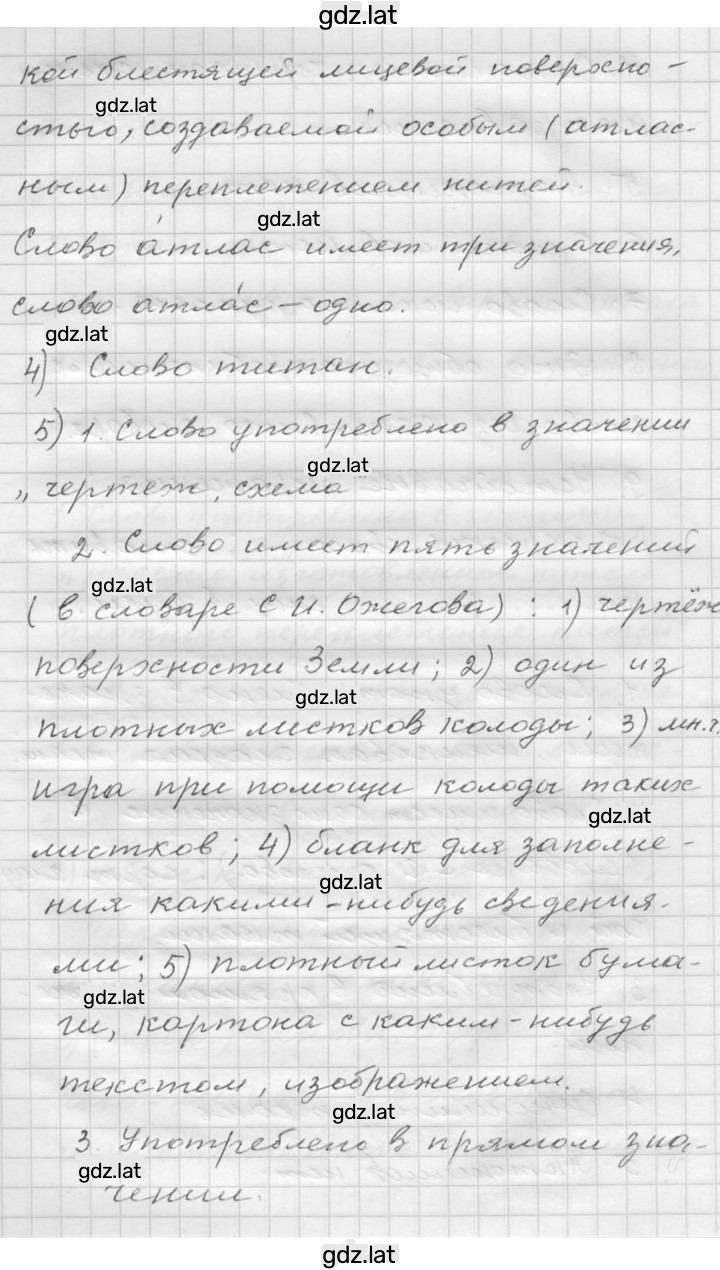 gdz.lat
кой блестящей лицевой поверхно-
gdz.lat
стью, создаваемой особым (атлас-
ным) переплетением нитей.
gdz.lat
Слово а́тлас имеет три значения,
слово атла́с – одно.
gdz.lat
4) Слово титан.
5) 1. Слово употреблено в значении
gdz.lat
„чертеж, схема"
2. Слово имеет пять значений
gdz.lat
(в словаре С И. Ожегова) : 1) чертёж
поверхности Земли; 2) один из
gdz.lat
плотных листков колоды; 3) мн.ч.
игра при помощи колоды таких
gdz.lat
листков; 4) бланк для заполне-
gdz.lat
ния какими-нибудь сведения-
ми; 5) плотный листок бума-
gdz.lat
ги, картона с каким-нибудь
текстом, изображением.
gdz.lat
3. Употреблено в прямом зна-
gdz.lat
чении.
gdz.lat